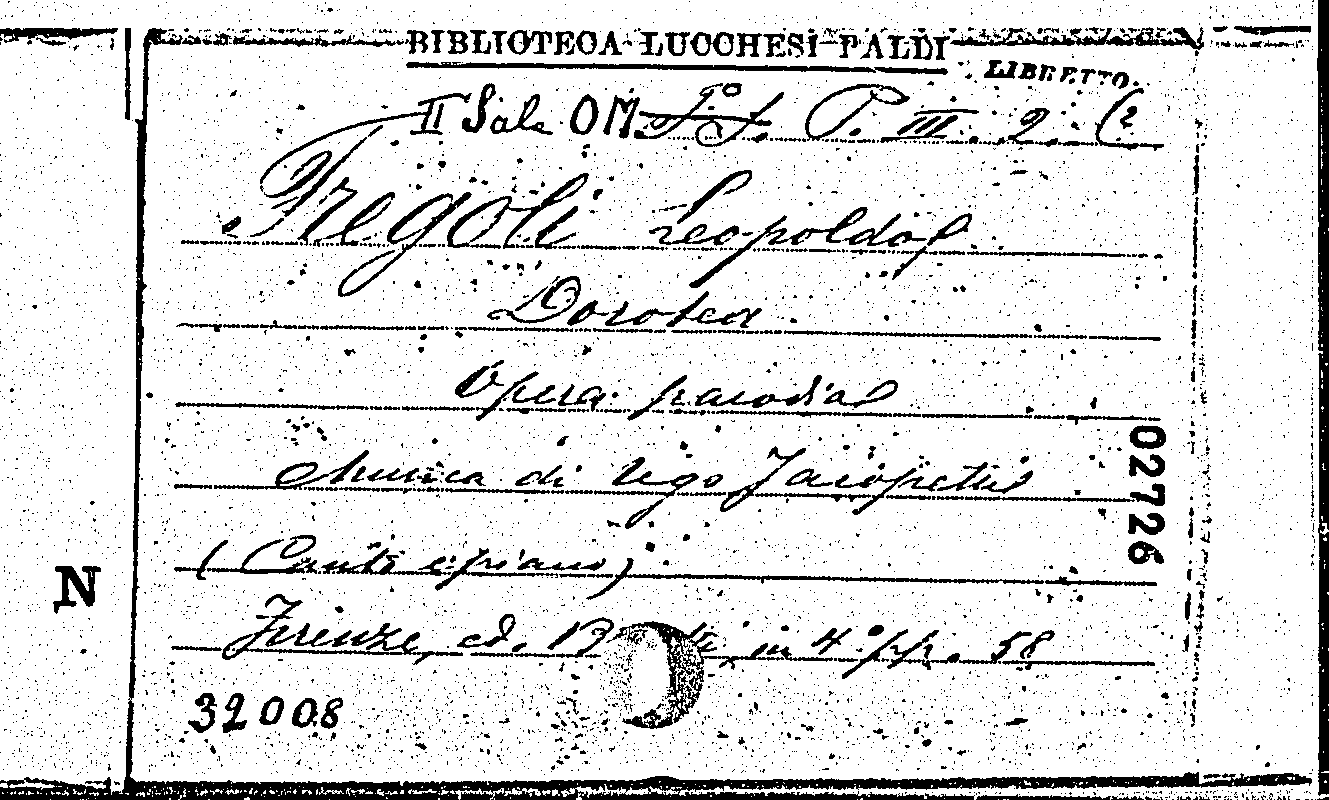 BIBLIOTECA LUCCHESI-PALLI
LIBRETTO.
II Sala OM. P. III. 2. (2
Fregoli Leopoldo
Dorotea
Opera parodia
Musica di Ugo Jacopetti
(Canto e piano)
Firenze, ed. in 4.° pp. 58
32008
02726
N